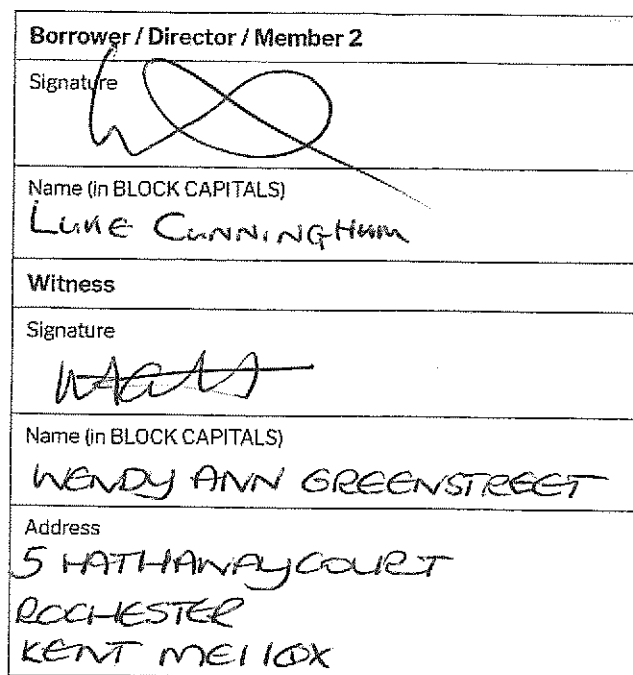 Borrower / Director / Member 2
Signature
Name (in BLOCK CAPITALS)
LUKE CUNNINGHAM
Witness
Signature
Name (in BLOCK CAPITALS)
WENDY ANN GREENSTREET
Address
5 HATHAWAY COURT
ROCHESTER
KENT ME1 1QX